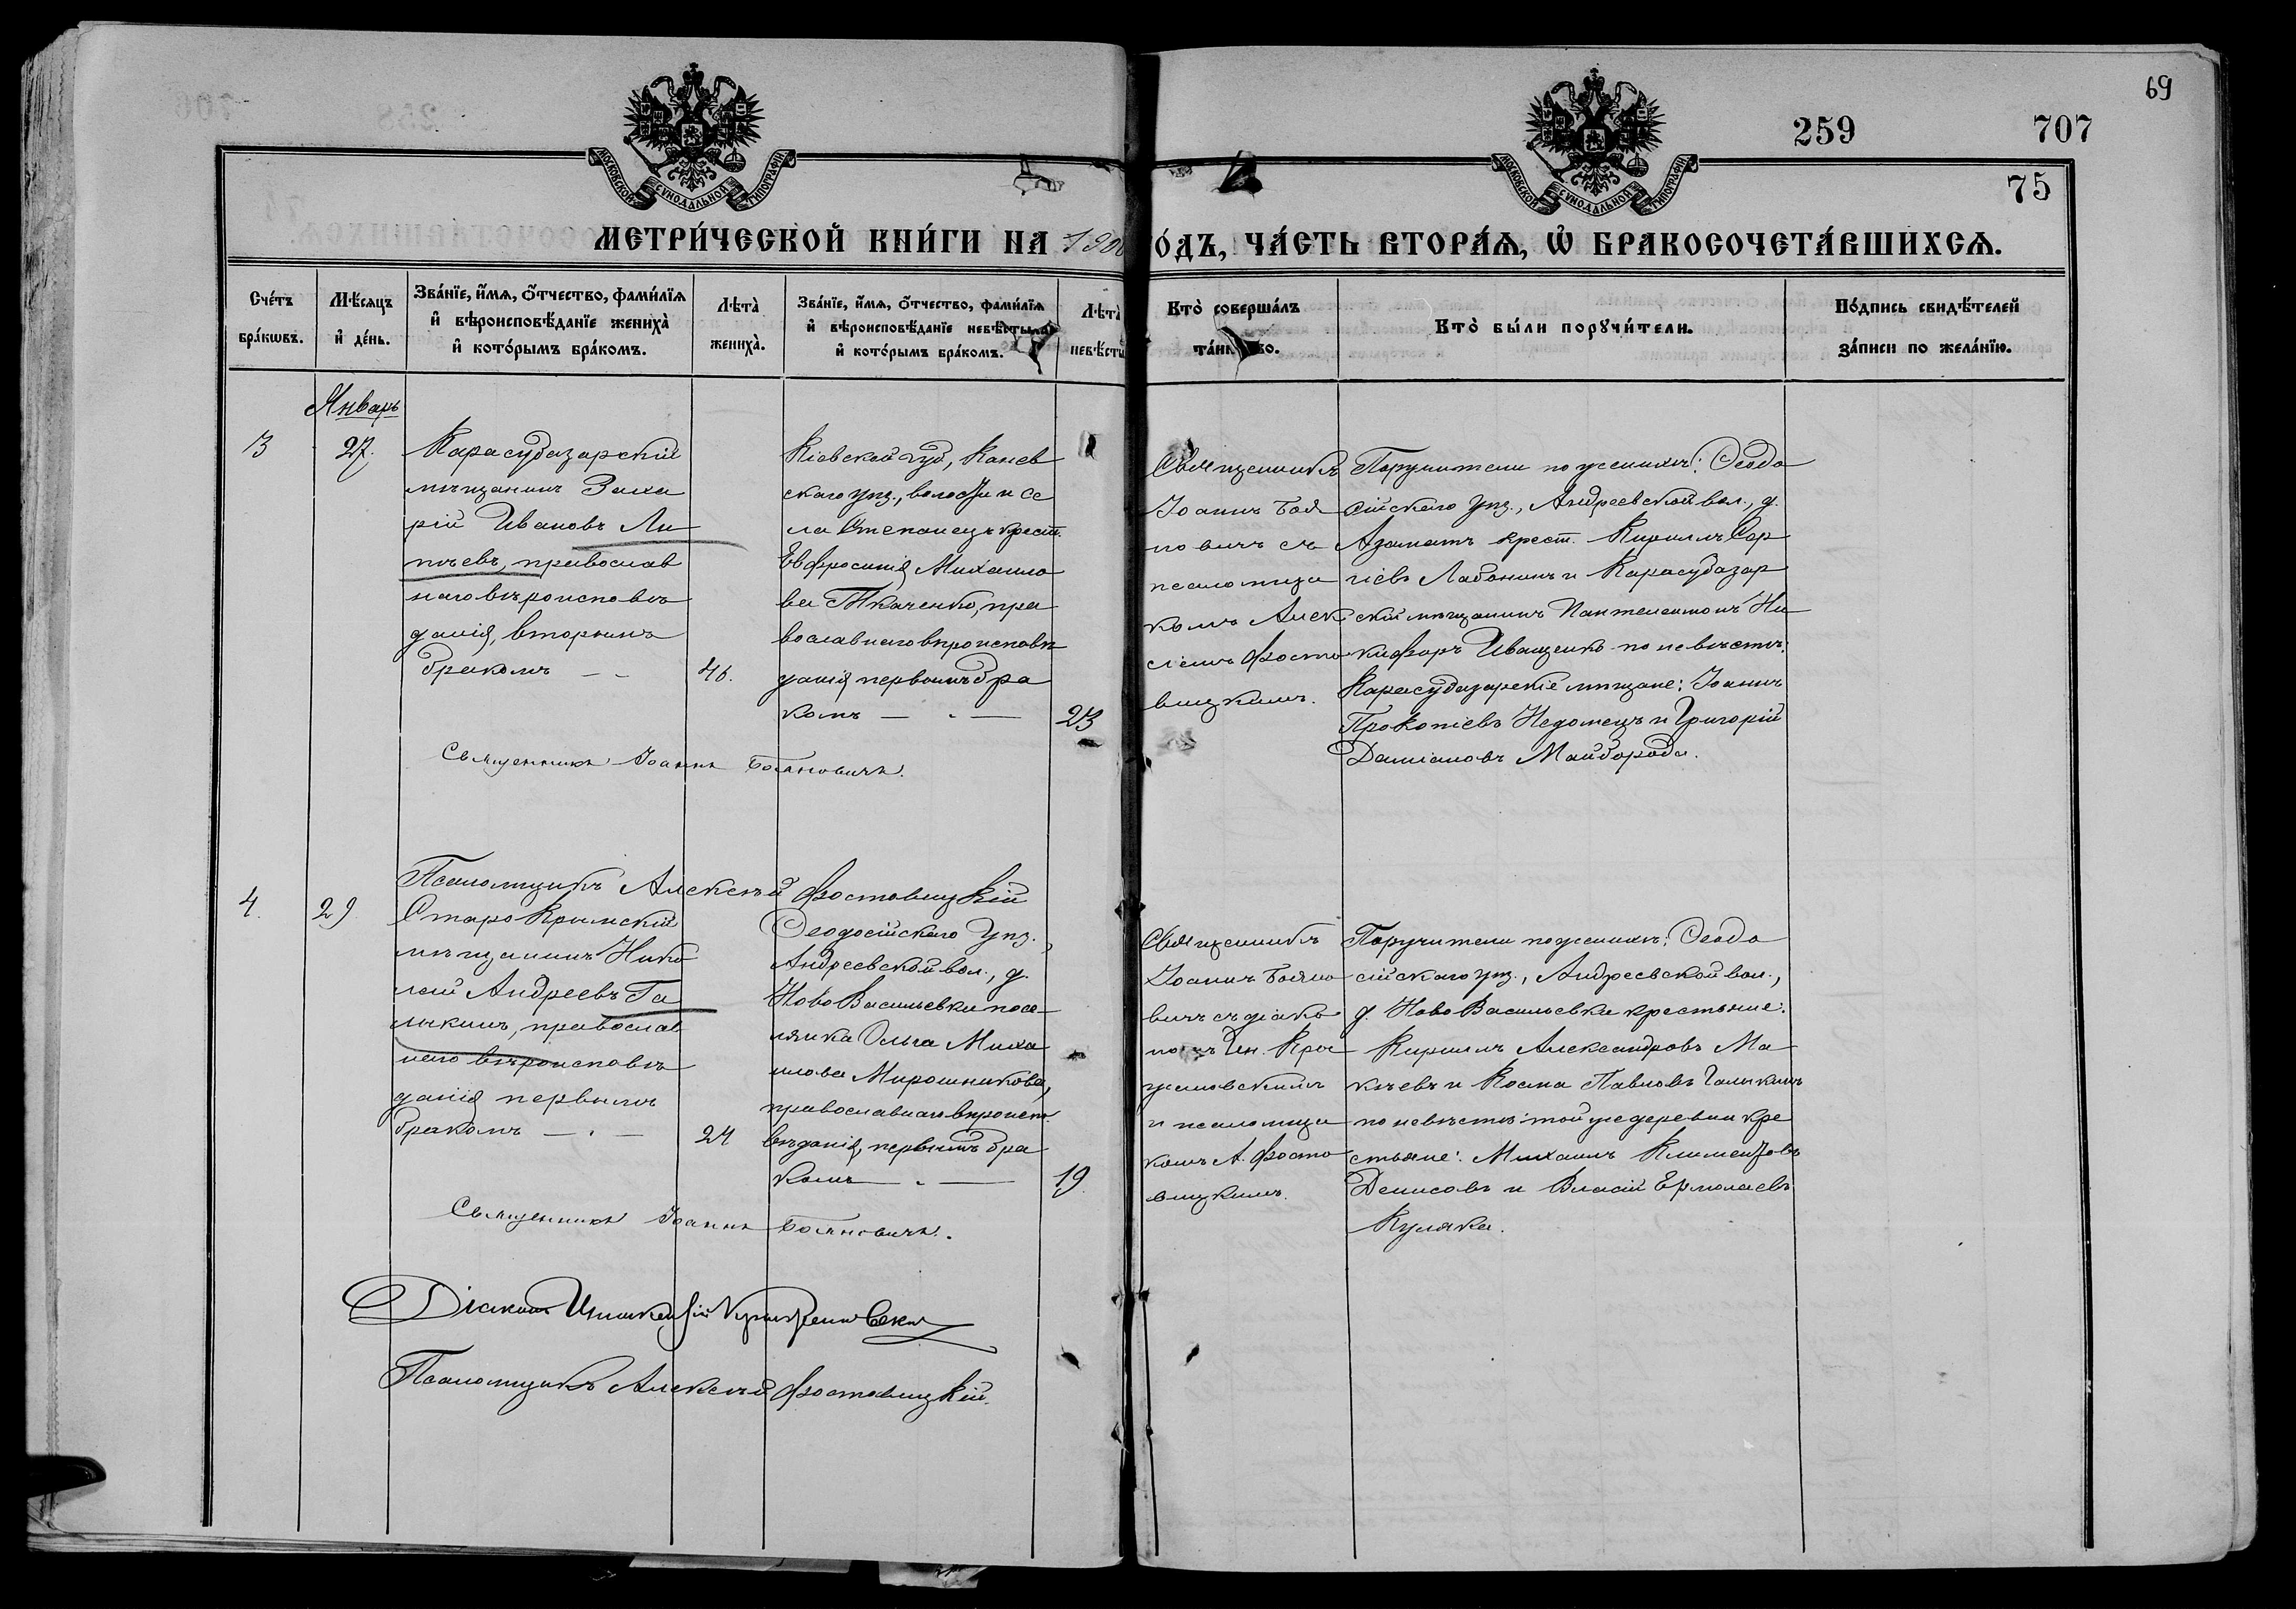 69
259 707
75
МОСКОВСКОЙ СУНОДАЛЬНОЙ ТИПОГРАФІИ.
МОСКОВСКОЙ СУНОДАЛЬНОЙ ТИПОГРАФІИ.
МЕТРИ́ЧЕСКОЙ КНИ́ГИ НА 190
О́ДЪ, ЧА́СТЬ ВТОРА́Я, Ѡ҆ БРАКОСОЧЕТА́ВШИХСЯ.
Сче́тъ бра́кѡвъ.
Мѣ́сяцъ и҆ де́нь.
Зва́нїе, и҆́мя, ѻ҆́тчество, фами́лїя и҆ вѣроисповѣ́данїе жениха̀ и҆ кото́рымъ бра́комъ.
Лѣта̀ жениха̀.
Зва́нїе, и҆́мя, ѻ҆́тчество, фами́лїя и҆ вѣроисповѣ́данїе невѣ́сты и҆ кото́рымъ бра́комъ.
Лѣта̀ невѣ́сты
Кто̀ соверша́лъ та́инство.
Кто̀ бы́ли порꙋчи́тели.
По́дпись свидѣ́телей за́писи по жела́нїю.
Январь
3
27.
Карасубазарскій
мѣщанинъ Заха
рій Ивановъ Ли
пѣевъ, православ
наго вѣроисповѣ
данія, вторымъ
бракомъ — —
46.
Кіевской губ., Канев
скаго уѣз., волости и се
ла Степанецъ крест.
Евфросинія Михаило
ва Ткаченко, пра
вославнаго вѣроисповѣ
данія, первымъ бра
комъ — . —
23
Священникъ
Іоаннъ Боя
новичъ съ
псаломщи
комъ Алек
сѣемъ Фосто
вицкимъ.
Поручители по женихѣ: Ѳеодо
сійскаго уѣз., Андреевской вол., д.
Азаматъ крест. Кириллъ Сер
гіевъ Лабонинъ и Карасубазар
скій мѣщанинъ Пантелеимонъ Ни
кифоръ Иващенко по невѣстѣ:
Карасубазарскіе мѣщане: Іоаннъ
Прокопіевъ Недомецъ и Григорій
Даміановъ Майборода.
Священникъ Іоаннъ Бояновичъ.
Псаломщикъ Алексѣй Фостовицкій
4.
29
Старокрымскій
мѣщанинъ Нико
лай Андреевъ Га
лыкинъ, православ
наго вѣроисповѣ
данія первымъ
бракомъ — . —
24
Ѳеодосійскаго уѣз.,
Андреевской вол., д.
Ново Васильевки посе
лянка Ольга Миха
илова Мирошникова,
православнаго вѣроиспо
вѣданія, первымъ бра
комъ — . —
19.
Священникъ
Іоаннъ Бояно
вичъ съ діако
номъ Ин. Кры
жановскимъ
и псаломщи
комъ А. Фосто
вицкимъ.
Поручители по женихѣ: Ѳеодо
сійскаго уѣз., Андреевской вол.,
д. Ново Васильевки крестьяне:
Кириллъ Александровъ Ма
кѣевъ и Косма Павловъ Галыкинъ
по невѣстѣ: той же деревни кре
стьяне: Михаилъ Климентовъ
Денисовъ и Власій Ермолаевъ
Куляка.
Священникъ Іоаннъ Бояновичъ.
Діаконъ Иннокентій Крыжановскій
Псаломщикъ Алексѣй Фостовицкій.